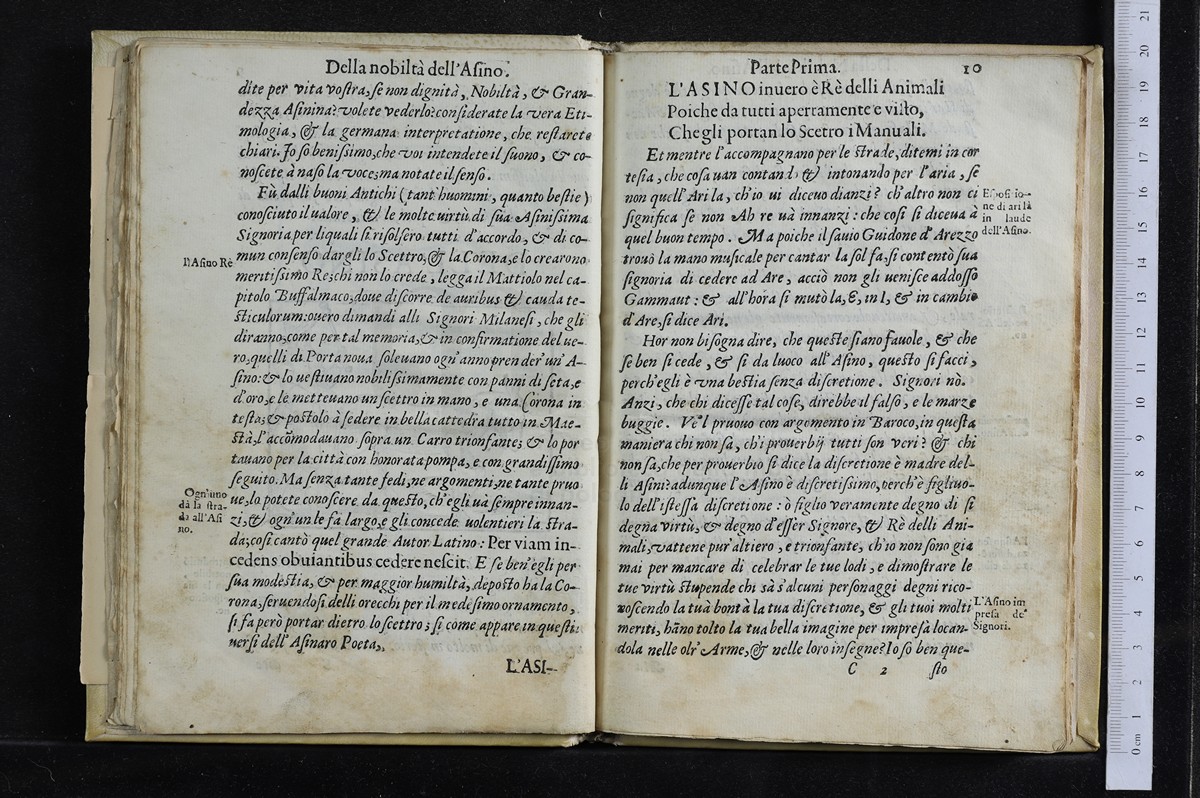 Della nobiltà dell'Asino.
dite per vita vostra, se non dignità, Nobiltà, & Gran-
dezza Asinina? volete vederlo? considerate la vera Eti-
mologia, & la germana interpretatione, che restarete
chiari. Io sò benissimo, che voi intendete il suono, & co-
noscete à naso la voce; ma notate il senso.
Fù dalli buoni Antichi (tant' huomini, quanto bestie)
conosciuto il ualore, & le molte virtù di sua Asinissima
Signoria per liquali si risolsero tutti d'accordo, & di co-
mun consenso dargli lo Scettro, & la Corona, e lo crearono
l'Asino Rè
meritissimo Re; chi non lo crede, legga il Mattiolo nel ca-
pitolo Buffalmaco, doue discorre de auribus & cauda te-
sticulorum: ouero dimandi alli Signori Milanesi, che gli
diranno, come per tal memoria, & in confirmatione del ue-
ro, quelli di Porta noua soleuano ogn'anno prender' un' A-
sino: & lo uestiuano nobilissimamente con panni di seta, e
d'oro, e le metteuano un scettro in mano, e una Corona in
testa; & postolo à sedere in bella cattedra tutto in Mae-
stà, l'accōmodauano sopra un Carro trionfante; & lo por
tauano per la città con honorata pompa, e con grandissimo
seguito. Ma senza tante fedi, ne argomenti, ne tante pruo
Ogn'uno
dà la stra-
da all'Asi
no.
ue, lo potete conoscere da questo, ch'egli uà sempre innan-
zi, & ogn'un le fa largo, e gli concede uolentieri la stra-
da; cosi cantò quel grande Autor Latino: Per viam in-
cedens obuiantibus cedere nescit. E se ben'egli per
sua modestia, & per maggior humiltà, deposto ha la Co-
rona, seruendosi delli orecchi per il medesimo ornamento,
si fa però portar dietro lo scettro; si come appare in questi
uersi dell' Asinaro Poeta,
L'ASI-
Parte Prima. 10
L'ASINO in uero è Rè delli Animali
Poiche da tutti apertamente e visto,
Che gli portan lo Scetro i Manuali.
Et mentre l'accompagnano per le strade, ditemi in cor
tesia, che cosa uan contand & intonando per l'aria, se
non quell' Ari la, ch'io ui diceuo dianzi? ch'altro non ci
significa se non Ah re uà innanzi: che cosi si diceua à
quel buon tempo. Ma poiche il sauio Guidone d'Arezzo
Espositio-
ne di ari là
in laude
dell'Asino.
trouò la mano musicale per cantar la sol fa, si contentò sua
signoria di cedere ad Are, acciò non gli uenisce addosso
Gammaut: & all'hora si mutò la, E, in I, & in cambio
d'Are, si dice Ari.
Hor non bisogna dire, che queste siano fauole, & che
se ben si cede, & si da luoco all' Asino, questo si facci,
perch'egli è vna bestia senza discretione. Signori nò.
Anzi, che chi dicesse tal cose, direbbe il falso, e le marze
buggie. Ve'l pruouo con argomento in Baroco, in questa
maniera chi non sa, ch'i prouerbij tutti son veri? & chi
non sa, che per prouerbio si dice la discretione è madre del-
li Asini? adunque l'Asino è discretissimo, perch'è figliuo-
lo dell'istessa discretione: ò figlio veramente degno di si
degna virtù, & degno d'esser Signore, & Rè delli Ani-
mali, vattene pur'altiero, e trionfante, ch'io non sono gia
mai per mancare di celebrar le tue lodi, e dimostrare le
tue virtù stupende chi sà s'alcuni personaggi degni rico-
noscendo la tuà bontà la tua discretione, & gli tuoi molti
L'Asino im
presa de
Signori.
meriti, hāno tolto la tua bella imagine per impresa locan-
dola nelle olr' Arme, & nelle loro insegne? Io sò ben que-
C 2 sto